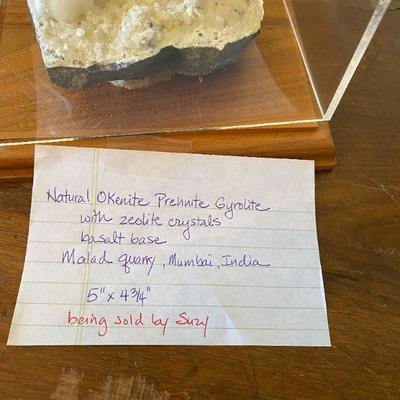 Natural Okenite Prehnite Gyrolite
with zeolite crystals
basalt base
Malad quarry, Mumbai, India
5" x 4 3/4"
being sold by Suzy